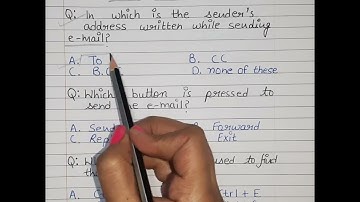 Q: In which is the sender's
address written while sending
e-mail?
A. To B. CC
C. B.C D. none of these
Q: Which button is pressed to
send the e-mail?
A. Send Forward
C. Rep Exit
Q: W used to find
the
A. C Ctrl + E